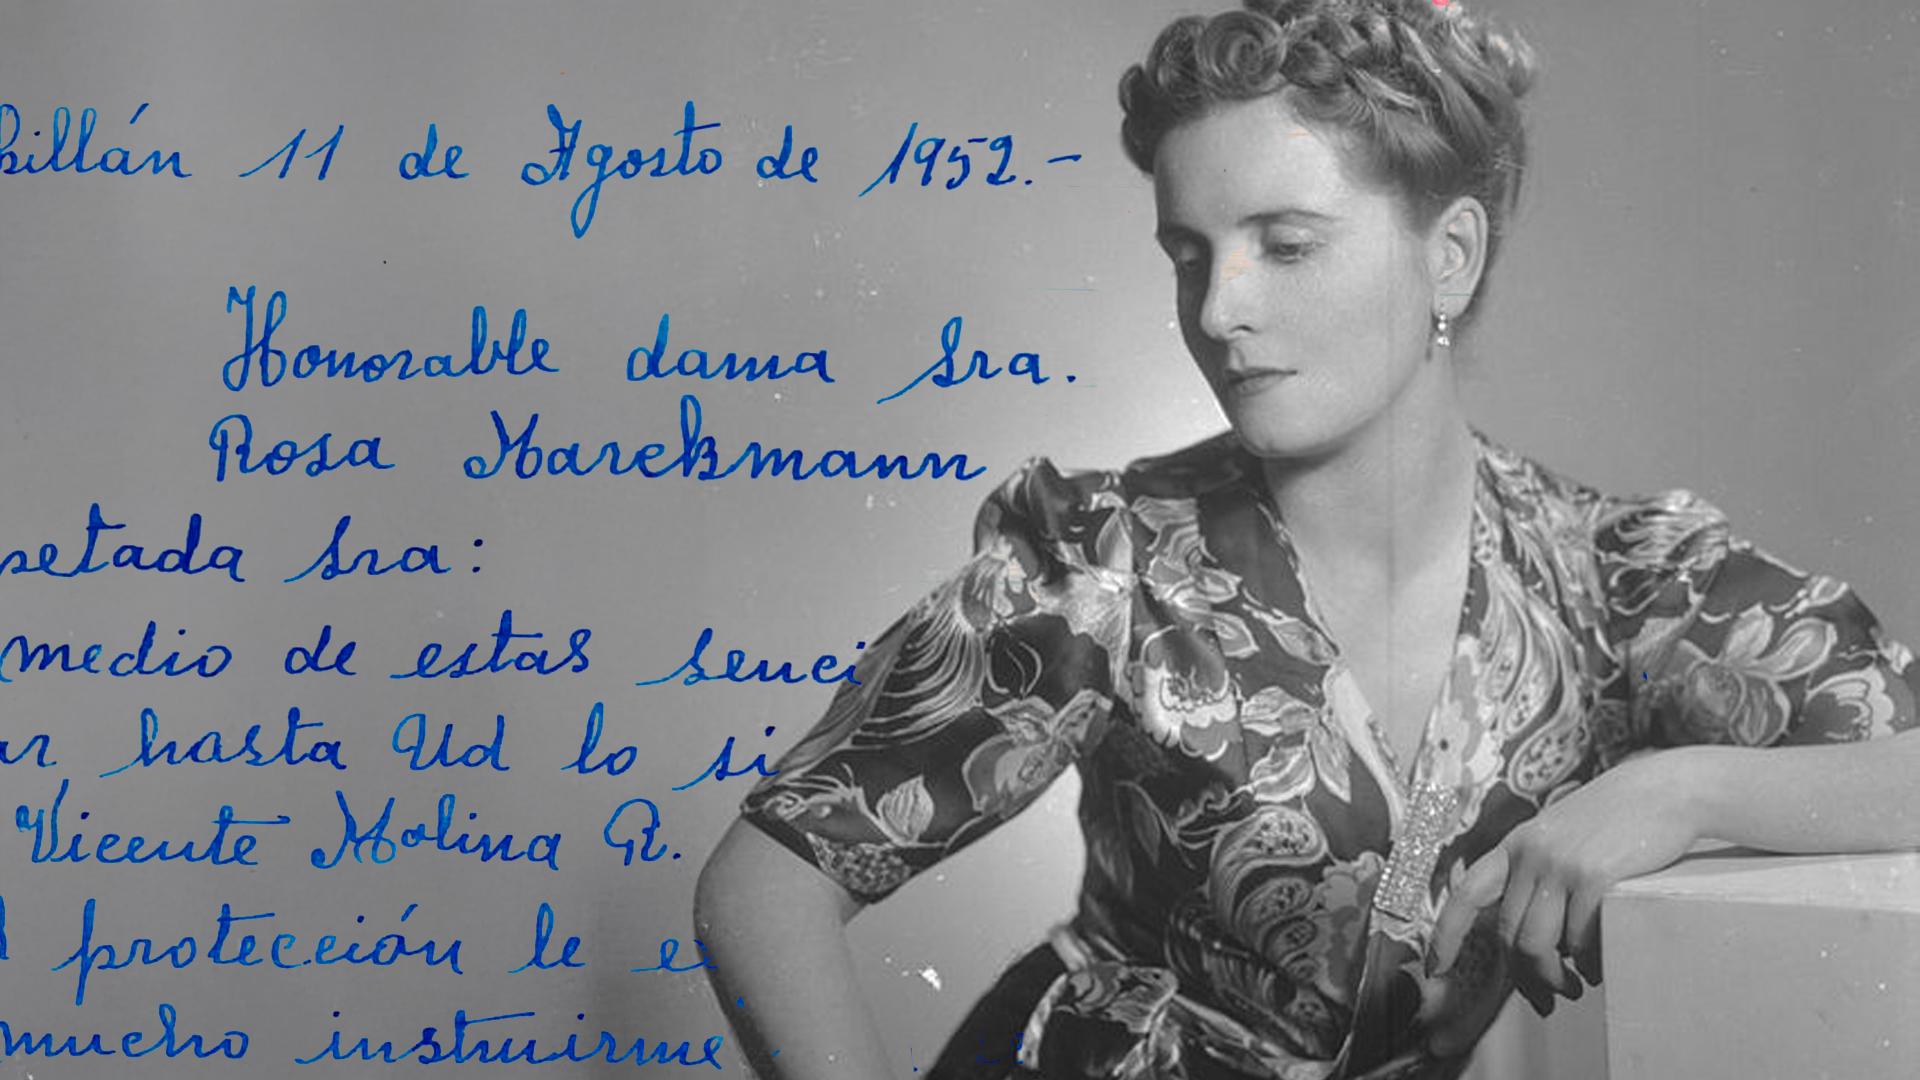 hillán 11 de Agosto de 1952.-
Honorable dama Sra.
Rosa Marckmann
petada Sra:
medio de estas senci
ar hasta Ud lo si
Vicente Molina R.
d protección le e
mucho instruirme